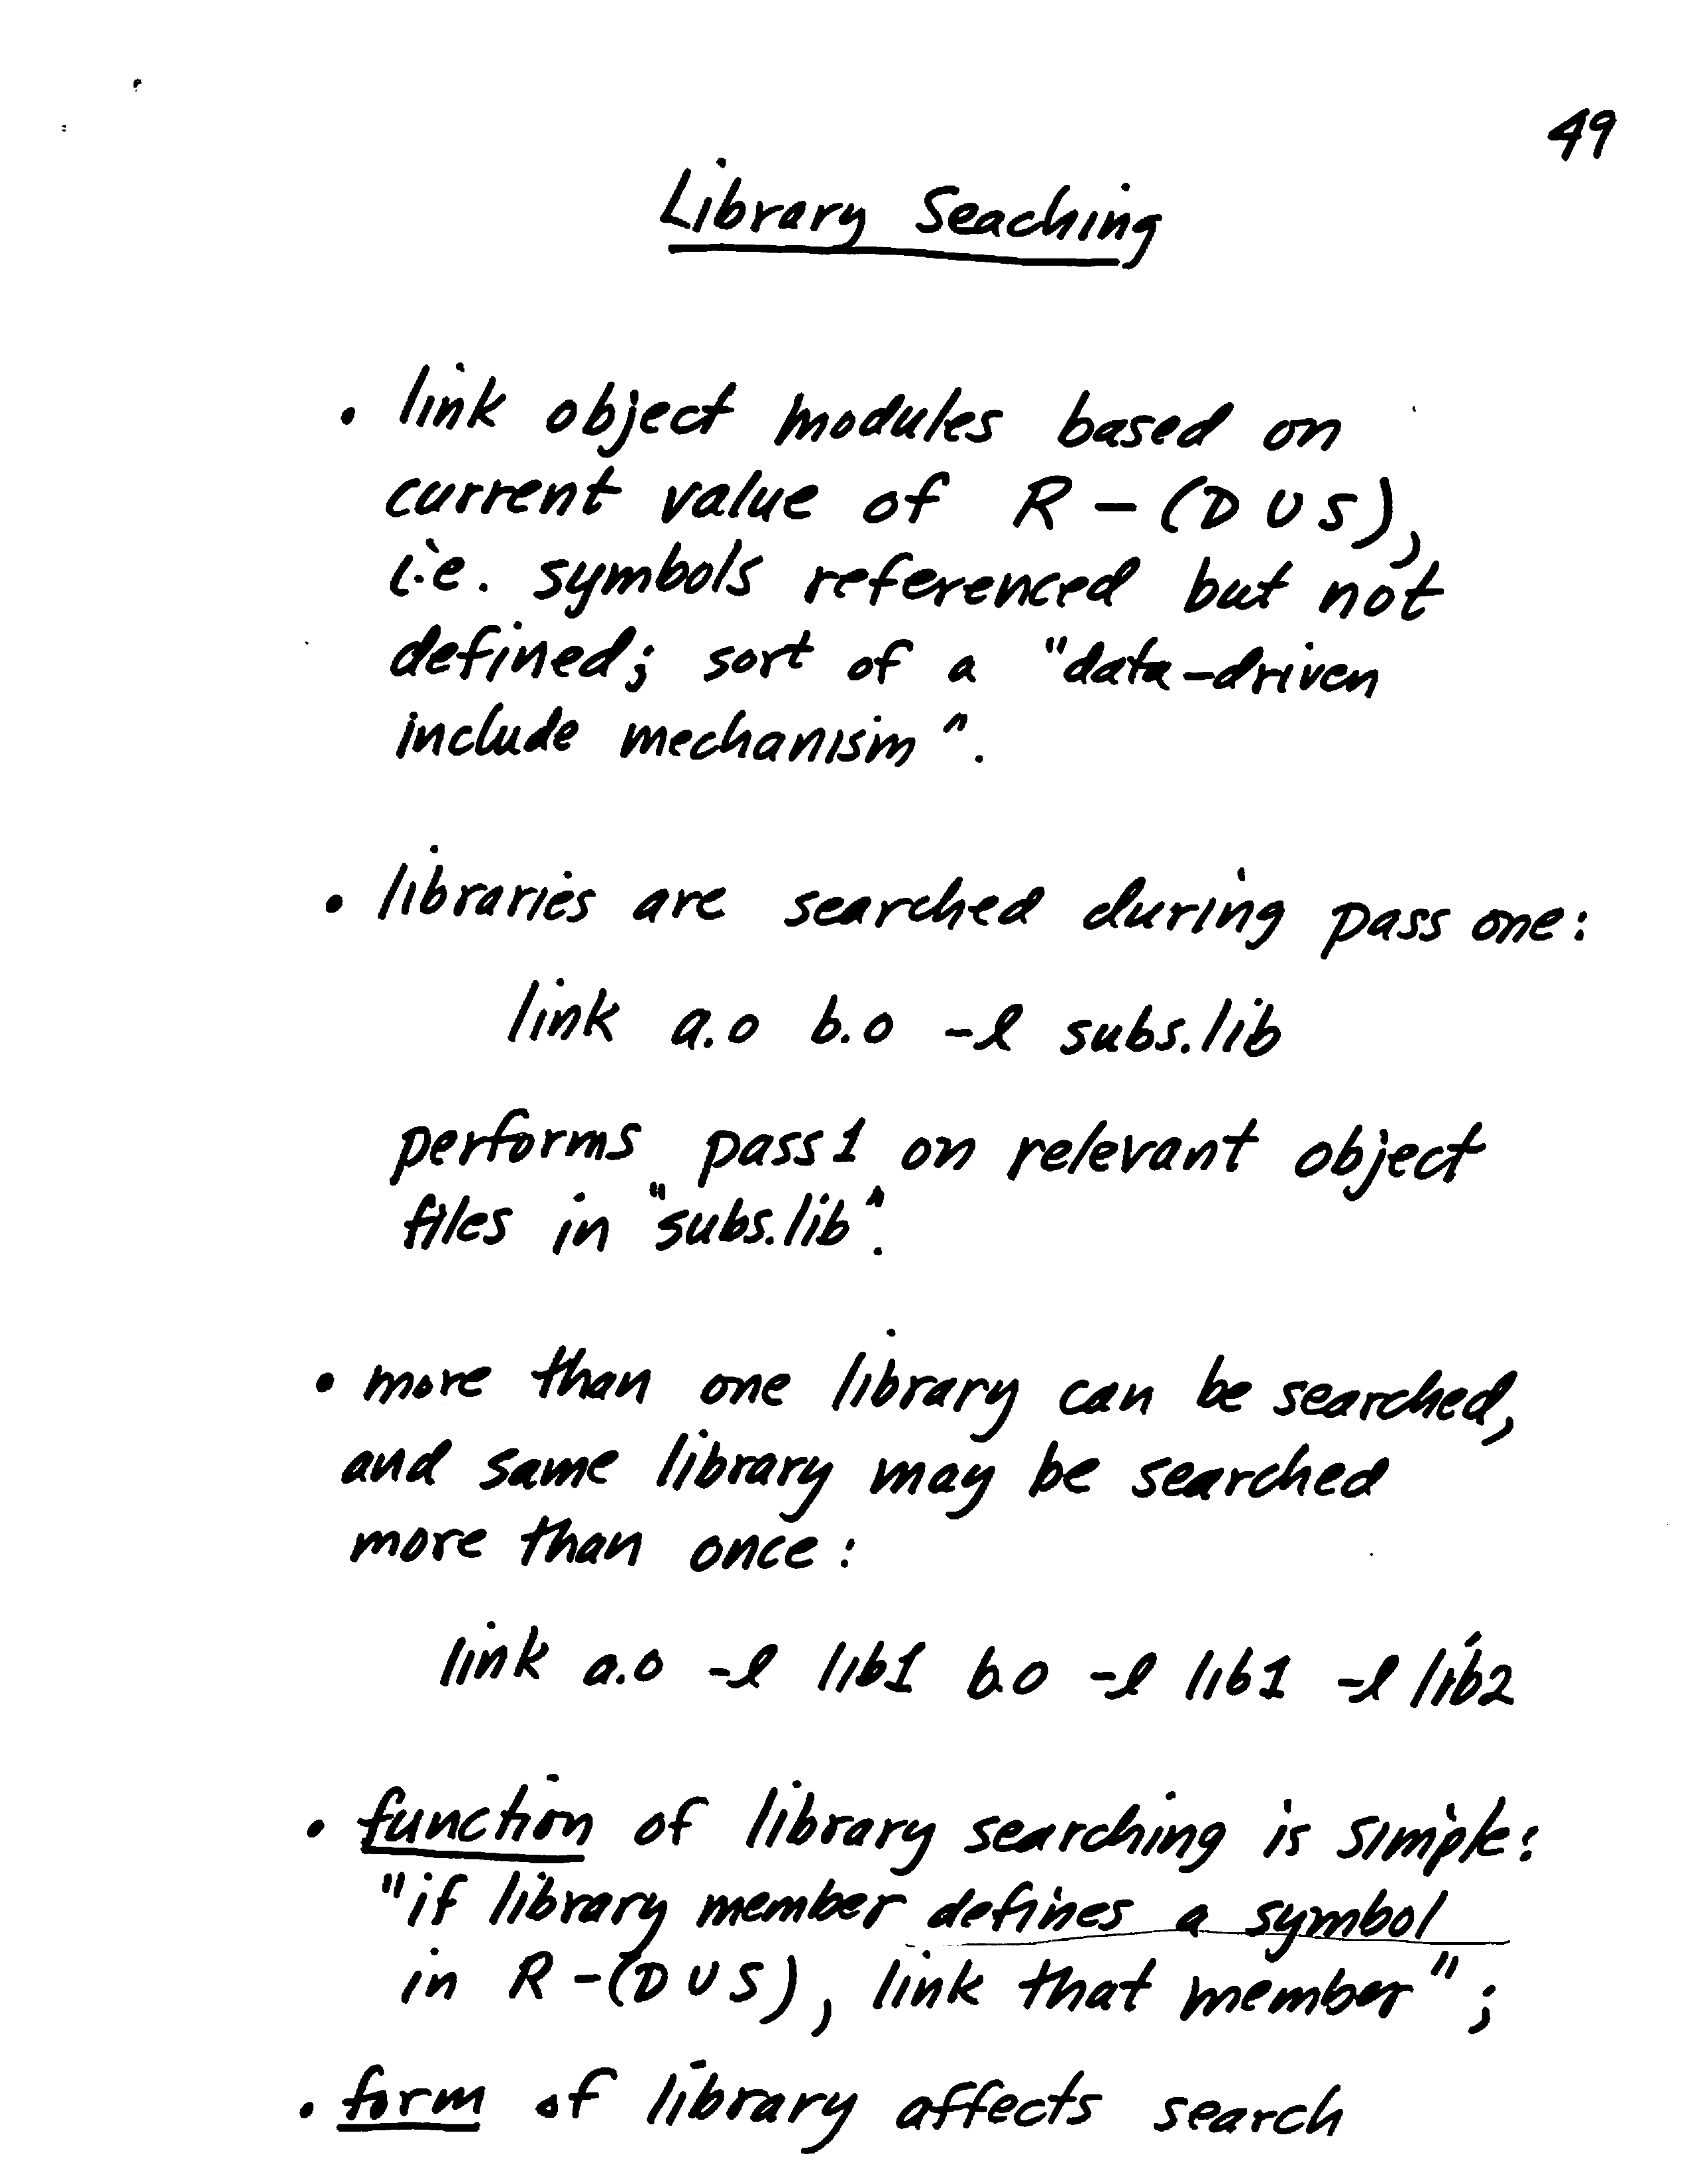 49
Library Seaching
• link object modules based on
current value of R - (D ∪ S),
i.e. symbols referenced but not
defined; sort of a "data-driven
include mechanism".
• libraries are searched during pass one:
link a.o b.o -l subs.lib
performs pass 1 on relevant object
files in "subs.lib".
• more than one library can be searched,
and same library may be searched
more than once:
link a.o -l lib1 b.o -l lib1 -l lib2
• function of library searching is simple:
"if library member defines a symbol
in R - (D ∪ S), link that member";
• form of library affects search